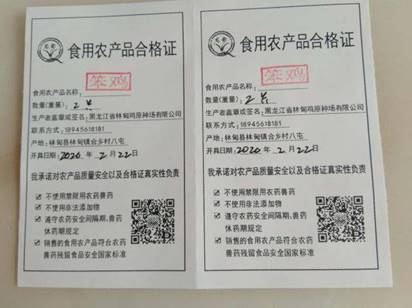 食用农产品合格证
食用农产品名称:
笨鸡
数量(重量):2只
生产者盖章或签名:黑龙江省林甸鸡原种场有限公司
联系方式:18945618181
产地:林甸县林甸镇合乡村八屯
开具日期:2020年2月22日
我承诺对农产品质量安全以及合格证真实性负责
不使用禁限用农药兽药
不使用非法添加物
遵守农药安全间隔期、兽药
休药期规定
销售的食用农产品符合农药
兽药残留食品安全国家标准
食用农产品合格证
食用农产品名称:
笨鸡
数量(重量):2只
生产者盖章或签名:黑龙江省林甸鸡原种场有限公司
联系方式:18945618181
产地:林甸县林甸镇合乡村八屯
开具日期:2020年2月22日
我承诺对农产品质量安全以及合格证真实性负责
不使用禁限用农药兽药
不使用非法添加物
遵守农药安全间隔期、兽药
休药期规定
销售的食用农产品符合农药
兽药残留食品安全国家标准